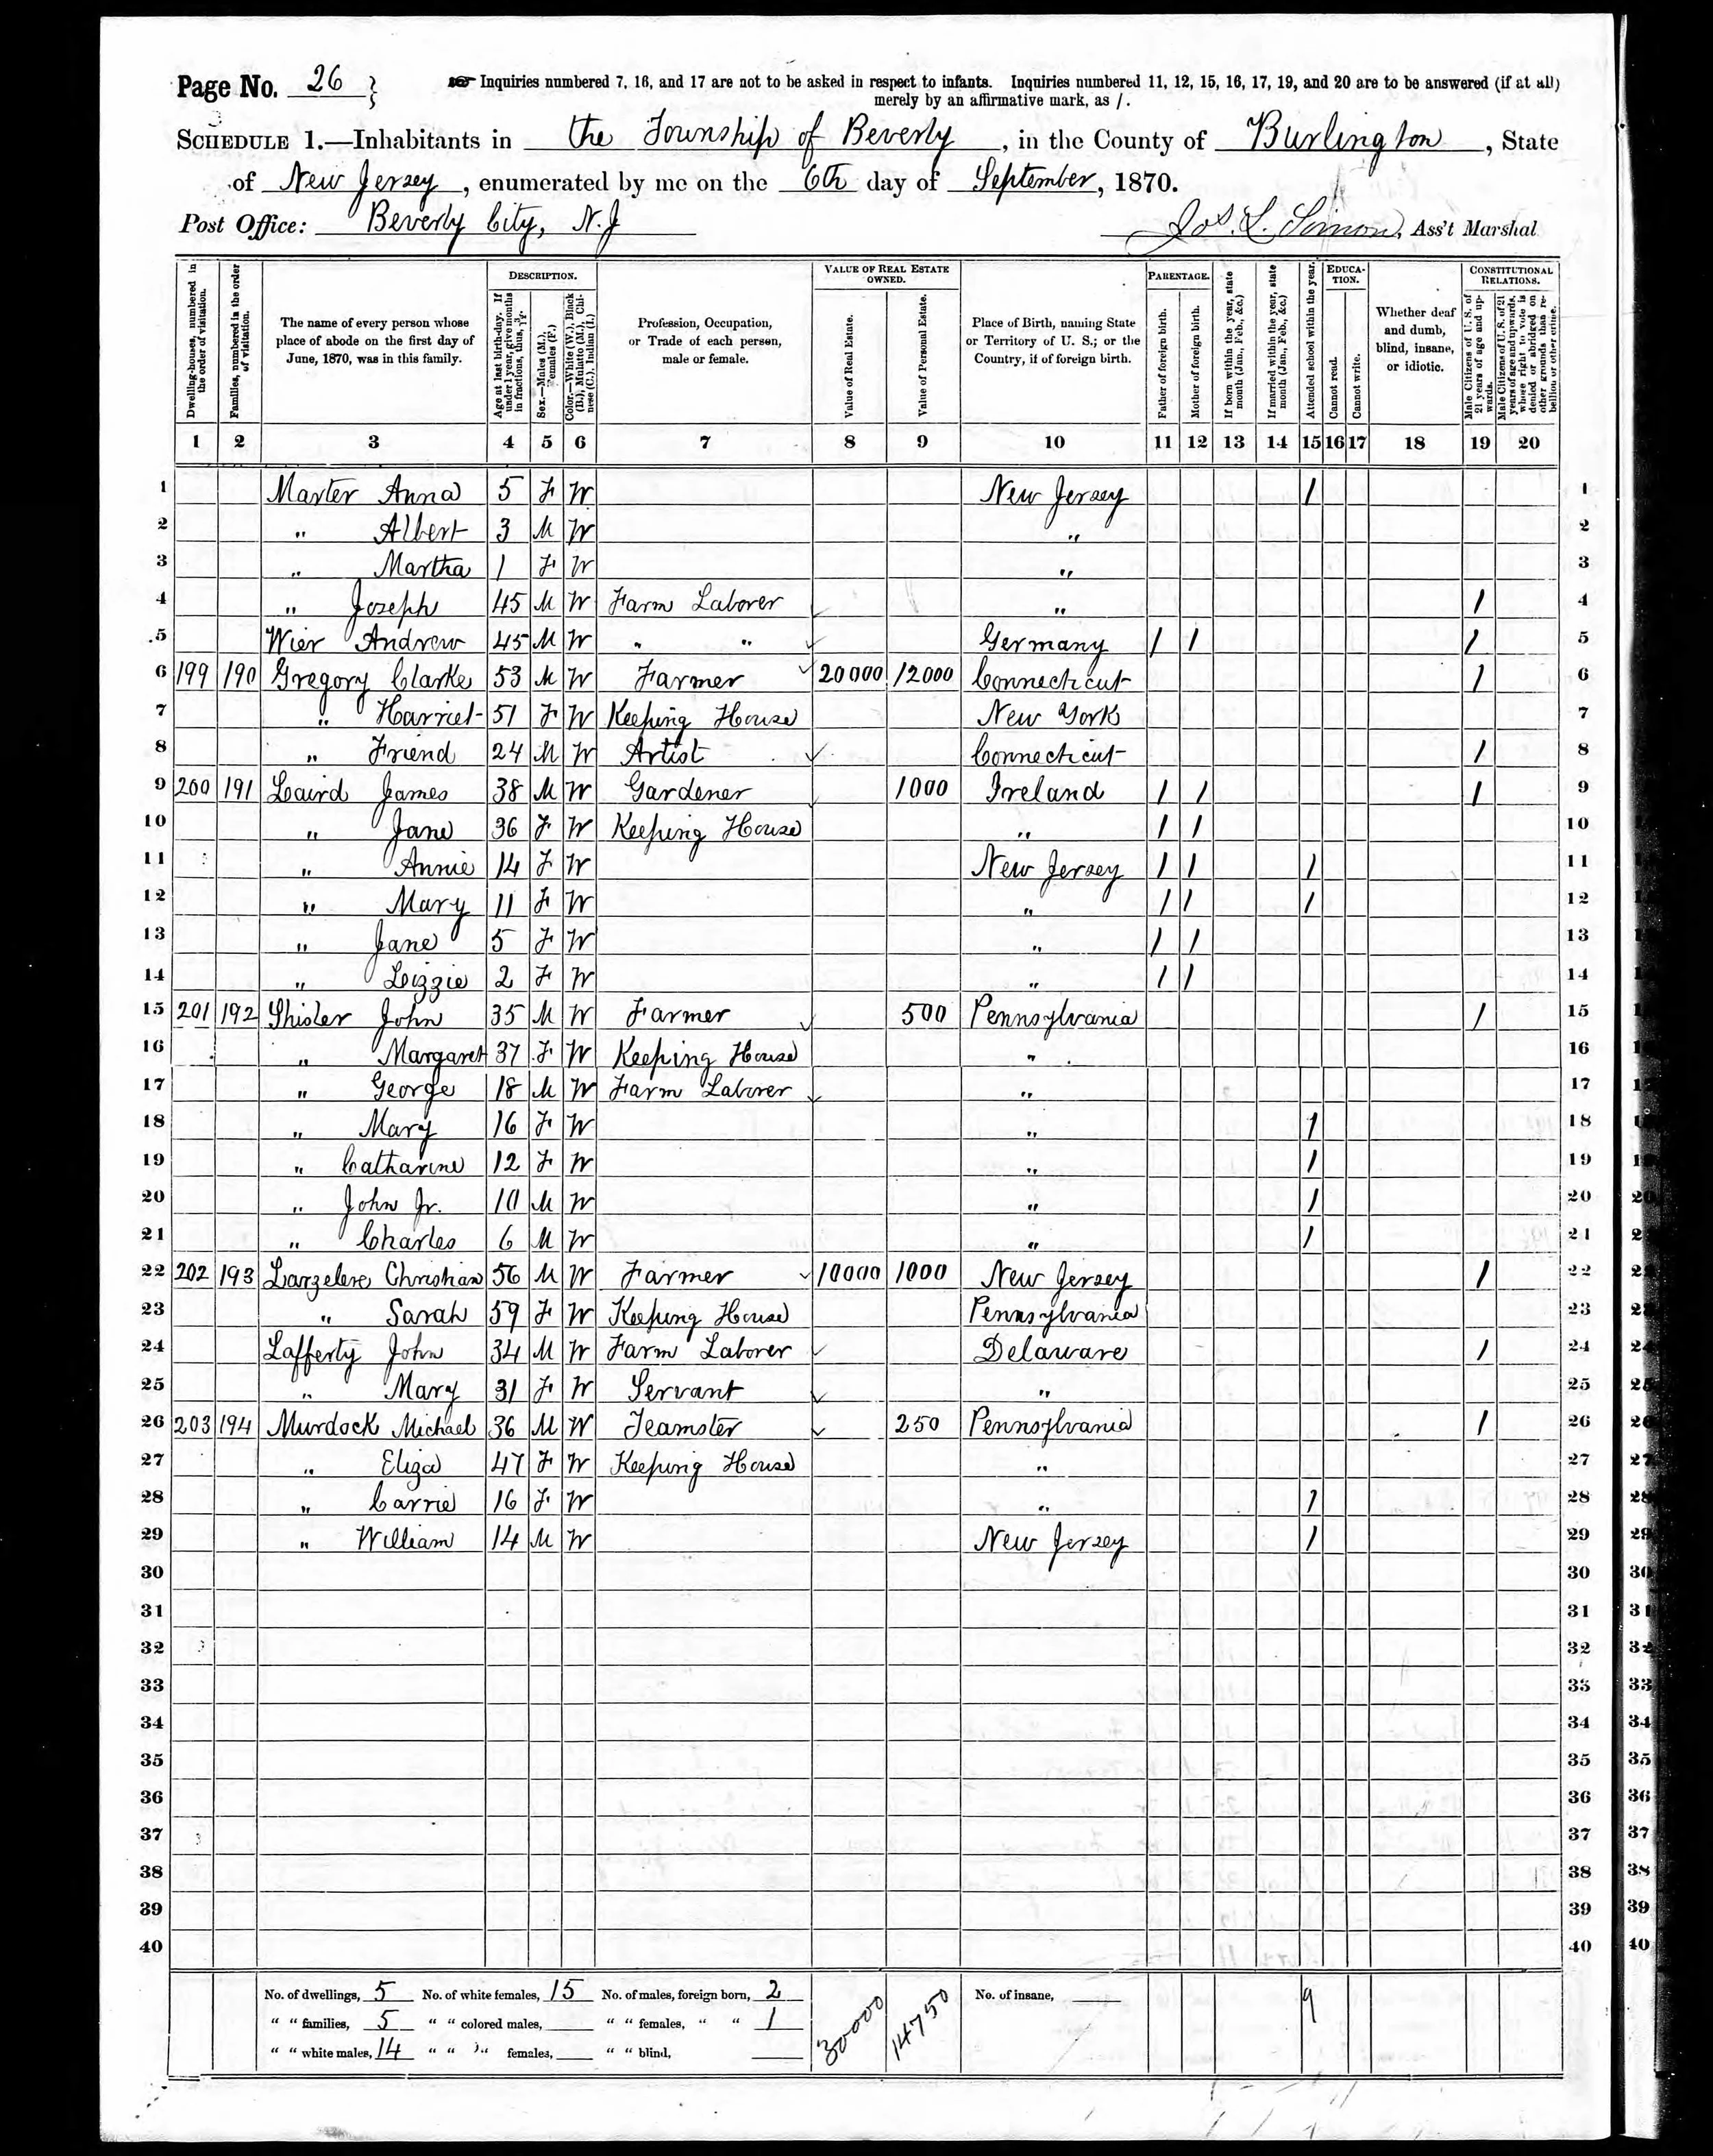 Page No. 26 }
Inquiries numbered 7, 16, and 17 are not to be asked in respect to infants. Inquiries numbered 11, 12, 15, 16, 17, 19, and 20 are to be answered (if at all)
merely by an affirmative mark, as /.
SCHEDULE 1.—Inhabitants in the Township of Beverly, in the County of Burlington, State
of New Jersey, enumerated by me on the 6th day of September, 1870.
Post Office: Beverly City, N.J Jos. L. Simon, Ass't Marshal
Dwelling-houses, numbered in the order of visitation.
Families, numbered in the order of visitation.
The name of every person whose place of abode on the first day of June, 1870, was in this family.
DESCRIPTION.
Age at last birth-day. If under 1 year, give months in fractions, thus, 3/12.
Sex.—Males (M.), Females (F.)
Color.—White (W.), Black (B.), Mulatto (M.), Chinese (C.), Indian (I.)
Profession, Occupation, or Trade of each person, male or female.
VALUE OF REAL ESTATE OWNED.
Value of Real Estate.
Value of Personal Estate.
Place of Birth, naming State or Territory of U. S.; or the Country, if of foreign birth.
PARENTAGE.
Father of foreign birth.
Mother of foreign birth.
If born within the year, state month (Jan., Feb., &c.)
If married within the year, state month (Jan., Feb., &c.)
Attended school within the year.
EDUCATION.
Cannot read.
Cannot write.
Whether deaf and dumb, blind, insane, or idiotic.
CONSTITUTIONAL RELATIONS.
Male Citizens of U. S. of 21 years of age and upwards.
Male Citizens of U. S. of 21 years of age and upwards, whose right to vote is denied or abridged on other grounds than rebellion or other crime.
1 2 3 4 5 6 7 8 9 10 11 12 13 14 15 16 17 18 19 20
1 Marter Anna 5 F W New Jersey / 1
2 " Albert 3 M W " 2
3 " Martha 1 F W " 3
4 " Joseph 45 M W Farm Laborer " / 4
5 Wier Andrew 45 M W " " Germany / / / 5
6 199 190 Gregory Clarke 53 M W Farmer 20000 12000 Connecticut / 6
7 " Harriet 51 F W Keeping House New York 7
8 " Friend 24 M W Artist Connecticut / 8
9 200 191 Laird James 38 M W Gardener 1000 Ireland / / / 9
10 " Jane 36 F W Keeping House " / / 10
11 " Annie 14 F W New Jersey / / / 11
12 " Mary 11 F W " / / / 12
13 " Jane 5 F W " / / 13
14 " Lizzie 2 F W " / / 14
15 201 192 Shisler John 35 M W Farmer 500 Pennsylvania / 15
16 " Margaret 37 F W Keeping House " 16
17 " George 18 M W Farm Laborer " 17
18 " Mary 16 F W " / 18
19 " Catharine 12 F W " / 19
20 " John Jr. 10 M W " / 20
21 " Charles 6 M W " / 21
22 202 193 Larzelere Christian 56 M W Farmer 10000 1000 New Jersey / 22
23 " Sarah 59 F W Keeping House Pennsylvania 23
24 Lafferty John 34 M W Farm Laborer Delaware / 24
25 " Mary 31 F W Servant " 25
26 203 194 Murdock Michael 36 M W Teamster 250 Pennsylvania / 26
27 " Eliza 47 F W Keeping House " 27
28 " Carrie 16 F W " / 28
29 " William 14 M W New Jersey / 29
30 30
31 31
32 32
33 33
34 34
35 35
36 36
37 37
38 38
39 39
40 40
No. of dwellings, 5 No. of white females, 15 No. of males, foreign born, 2 30000 14750 No. of insane, 9
" " families, 5 " " colored males, " " females, " " 1
" " white males, 14 " " " females, " " blind,